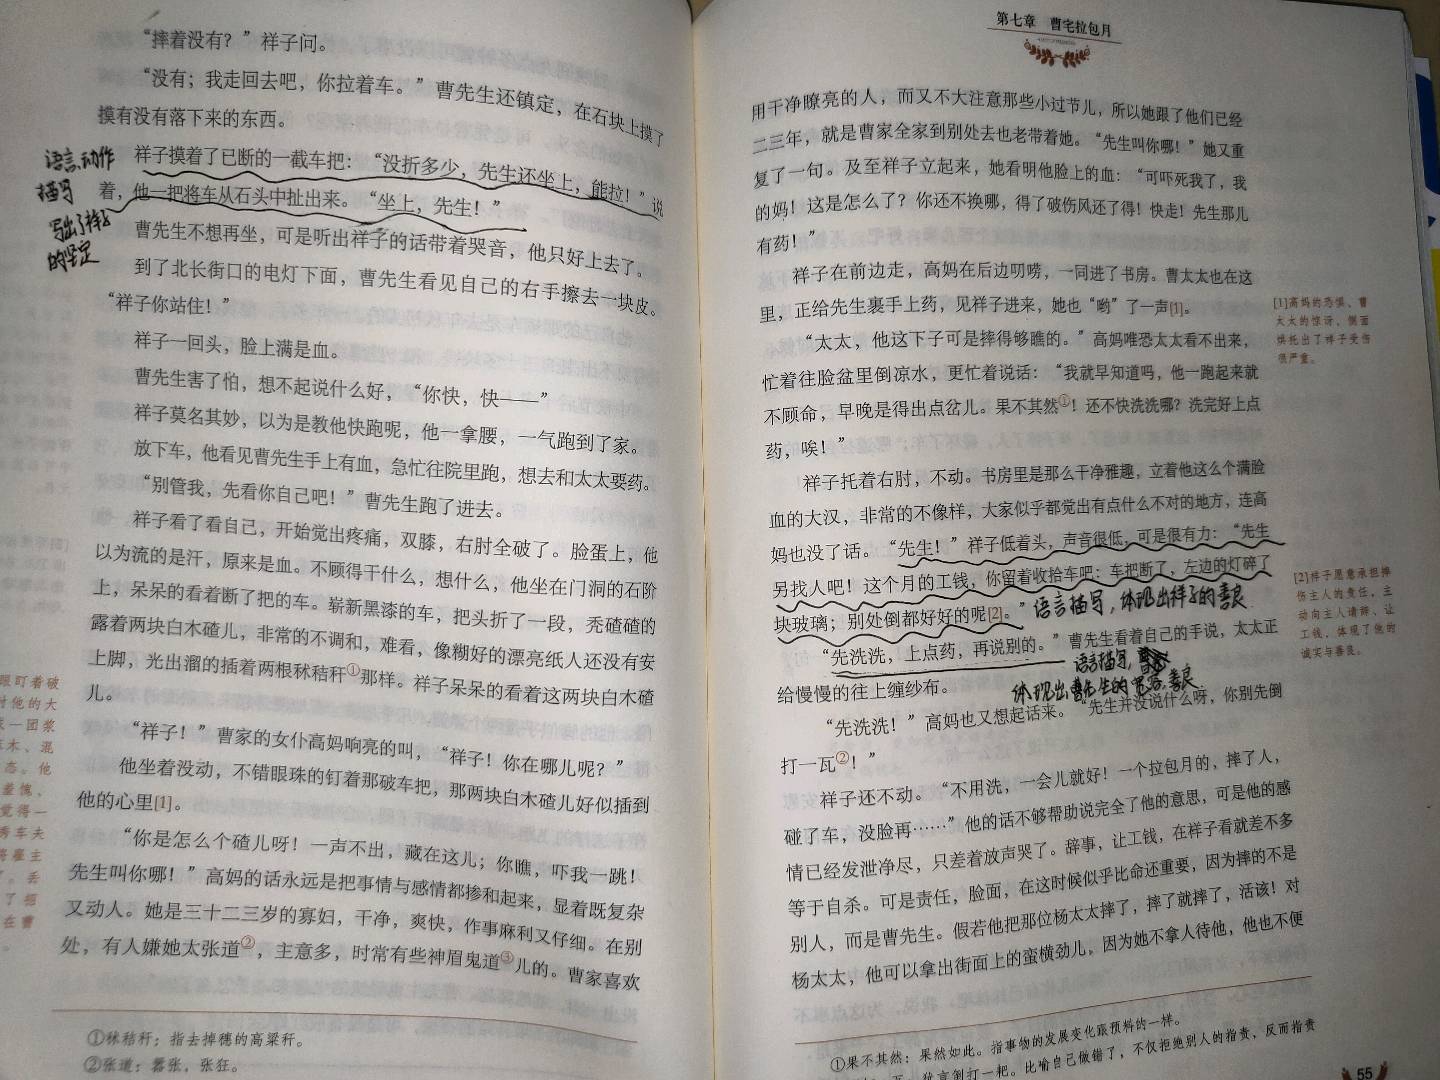 “摔着没有？”祥子问。
“没有；我走回去吧，你拉着车。”曹先生还镇定，在石块上摸了
摸有没有落下来的东西。
祥子摸着了已断的一截车把：“没折多少，先生还坐上，能拉！”说
着，他一把将车从石头中扯出来。“坐上，先生！”
曹先生不想再坐，可是听出祥子的话带着哭音，他只好上去了。
到了北长街口的电灯下面，曹先生看见自己的右手擦去一块皮。
“祥子你站住！”
祥子一回头，脸上满是血。
曹先生害了怕，想不起说什么好，“你快，快——”
祥子莫名其妙，以为是教他快跑呢，他一拿腰，一气跑到了家。
放下车，他看见曹先生手上有血，急忙往院里跑，想去和太太要药。
“别管我，先看你自己吧！”曹先生跑了进去。
祥子看了看自己，开始觉出疼痛，双膝，右肘全破了。脸蛋上，他
以为流的是汗，原来是血。不顾得干什么，想什么，他坐在门洞的石阶
上，呆呆的看着断了把的车。崭新黑漆的车，把头折了一段，秃碴碴的
露着两块白木碴儿，非常的不调和，难看，像糊好的漂亮纸人还没有安
上脚，光出溜的插着两根秫秸秆①那样。祥子呆呆的看着这两块白木碴
儿。
“祥子！”曹家的女仆高妈响亮的叫，“祥子！你在哪儿呢？”
他坐着没动，不错眼珠的钉着那破车把，那两块白木碴儿好似插到
他的心里[1]。
“你是怎么个碴儿呀！一声不出，藏在这儿；你瞧，吓我一跳！
先生叫你哪！”高妈的话永远是把事情与感情都掺和起来，显着既复杂
又动人。她是三十二三岁的寡妇，干净，爽快，作事麻利又仔细。在别
处，有人嫌她太张道②，主意多，时常有些神眉鬼道③儿的。曹家喜欢
①秫秸秆：指去掉穗的高粱秆。
②张道：嚣张，张狂。
语言,动作
描写
写出了祥子
的坚定
眼盯着破
对他的大
成一团浆
木、混
态。他
羞愧、
觉得一
秀车夫
将雇主
了。丢
了想
在曹
第七章 曹宅拉包月
用干净瞭亮的人，而又不大注意那些小过节儿，所以她跟了他们已经
二三年，就是曹家全家到别处去也老带着她。“先生叫你哪！”她又重
复了一句。及至祥子立起来，她看明他脸上的血：“可吓死我了，我
的妈！这是怎么了？你还不换哪，得了破伤风还了得！快走！先生那儿
有药！”
祥子在前边走，高妈在后边叨唠，一同进了书房。曹太太也在这
里，正给先生裹手上药，见祥子进来，她也“哟”了一声[1]。
“太太，他这下子可是摔得够瞧的。”高妈唯恐太太看不出来，
忙着往脸盆里倒凉水，更忙着说话：“我就早知道吗，他一跑起来就
不顾命，早晚是得出点岔儿。果不其然①！还不快洗洗哪？洗完好上点
药，唉！”
祥子托着右肘，不动。书房里是那么干净雅趣，立着他这么个满脸
血的大汉，非常的不像样，大家似乎都觉出有点什么不对的地方，连高
妈也没了话。“先生！”祥子低着头，声音很低，可是很有力：“先生
另找人吧！这个月的工钱，你留着收拾车吧：车把断了，左边的灯碎了
块玻璃；别处倒都好好的呢[2]。”
语言描写，体现出祥子的善良
“先洗洗，上点药，再说别的。”曹先生看着自己的手说，太太正
给慢慢的往上缠纱布。
语言描写，
体现出曹先生的宽容，善良
“先洗洗！”高妈也又想起话来。“先生并没说什么呀，你别先倒
打一瓦②！”
祥子还不动。“不用洗，一会儿就好！一个拉包月的，摔了人，
碰了车，没脸再……”他的话不够帮助说完全了他的意思，可是他的感
情已经发泄净尽，只差着放声哭了。辞事，让工钱，在祥子看就差不多
等于自杀。可是责任，脸面，在这时候似乎比命还重要，因为摔的不是
别人，而是曹先生。假若他把那位杨太太摔了，摔了就摔了，活该！对
杨太太，他可以拿出街面上的蛮横劲儿，因为她不拿人待他，他也不便
①果不其然：果然如此。指事物的发展变化跟预料的一样。
犹言倒打一耙。比喻自己做错了，不仅拒绝别人的指责，反而指责
[1]高妈的恐惧、曹
太太的惊讶，侧面
烘托出了祥子受伤
很严重。
[2]祥子愿意承担摔
伤主人的责任，主
动向主人请辞、让
工钱，体现了他的
诚实与善良。
55